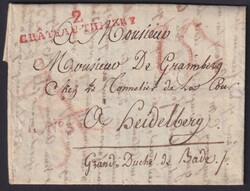 2
CHÂTEAU-THIERRY
A Monsieur
Monsieur De Graimberg
Chez Mr
de la Cour
A Heidelberg
Grand Duché de Bade